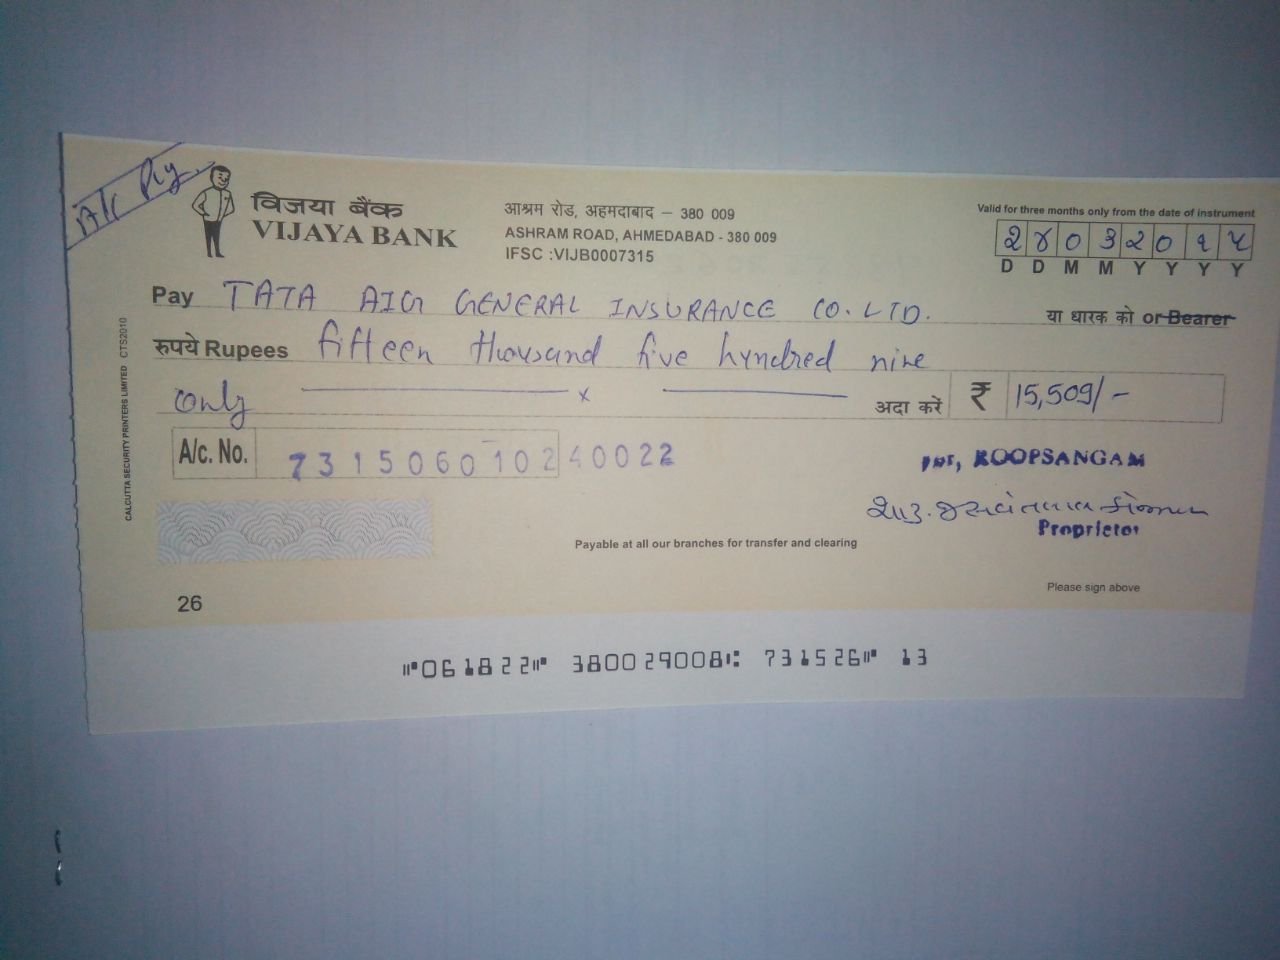 A/c Pay.
विजया बैंक
VIJAYA BANK
आश्रम रोड, अहमदाबाद – 380 009
ASHRAM ROAD, AHMEDABAD - 380 009
IFSC :VIJB0007315
Valid for three months only from the date of instrument
૨૪૦૩૨૦૧૫
D D M M Y Y Y Y
Pay TATA AIG GENERAL INSURANCE CO. LTD. या धारक को or Bearer
रुपये Rupees fifteen thousand five hundred nine
only x अदा करें ₹ 15,509/-
A/c. No. 731506010240022
For, ROOPSANGAM
Proprietor
Payable at all our branches for transfer and clearing
Please sign above
26
⑈061822⑈ 380029008⑆ 731526⑈ 13
CALCUTTA SECURITY PRINTERS LIMITED CTS2010